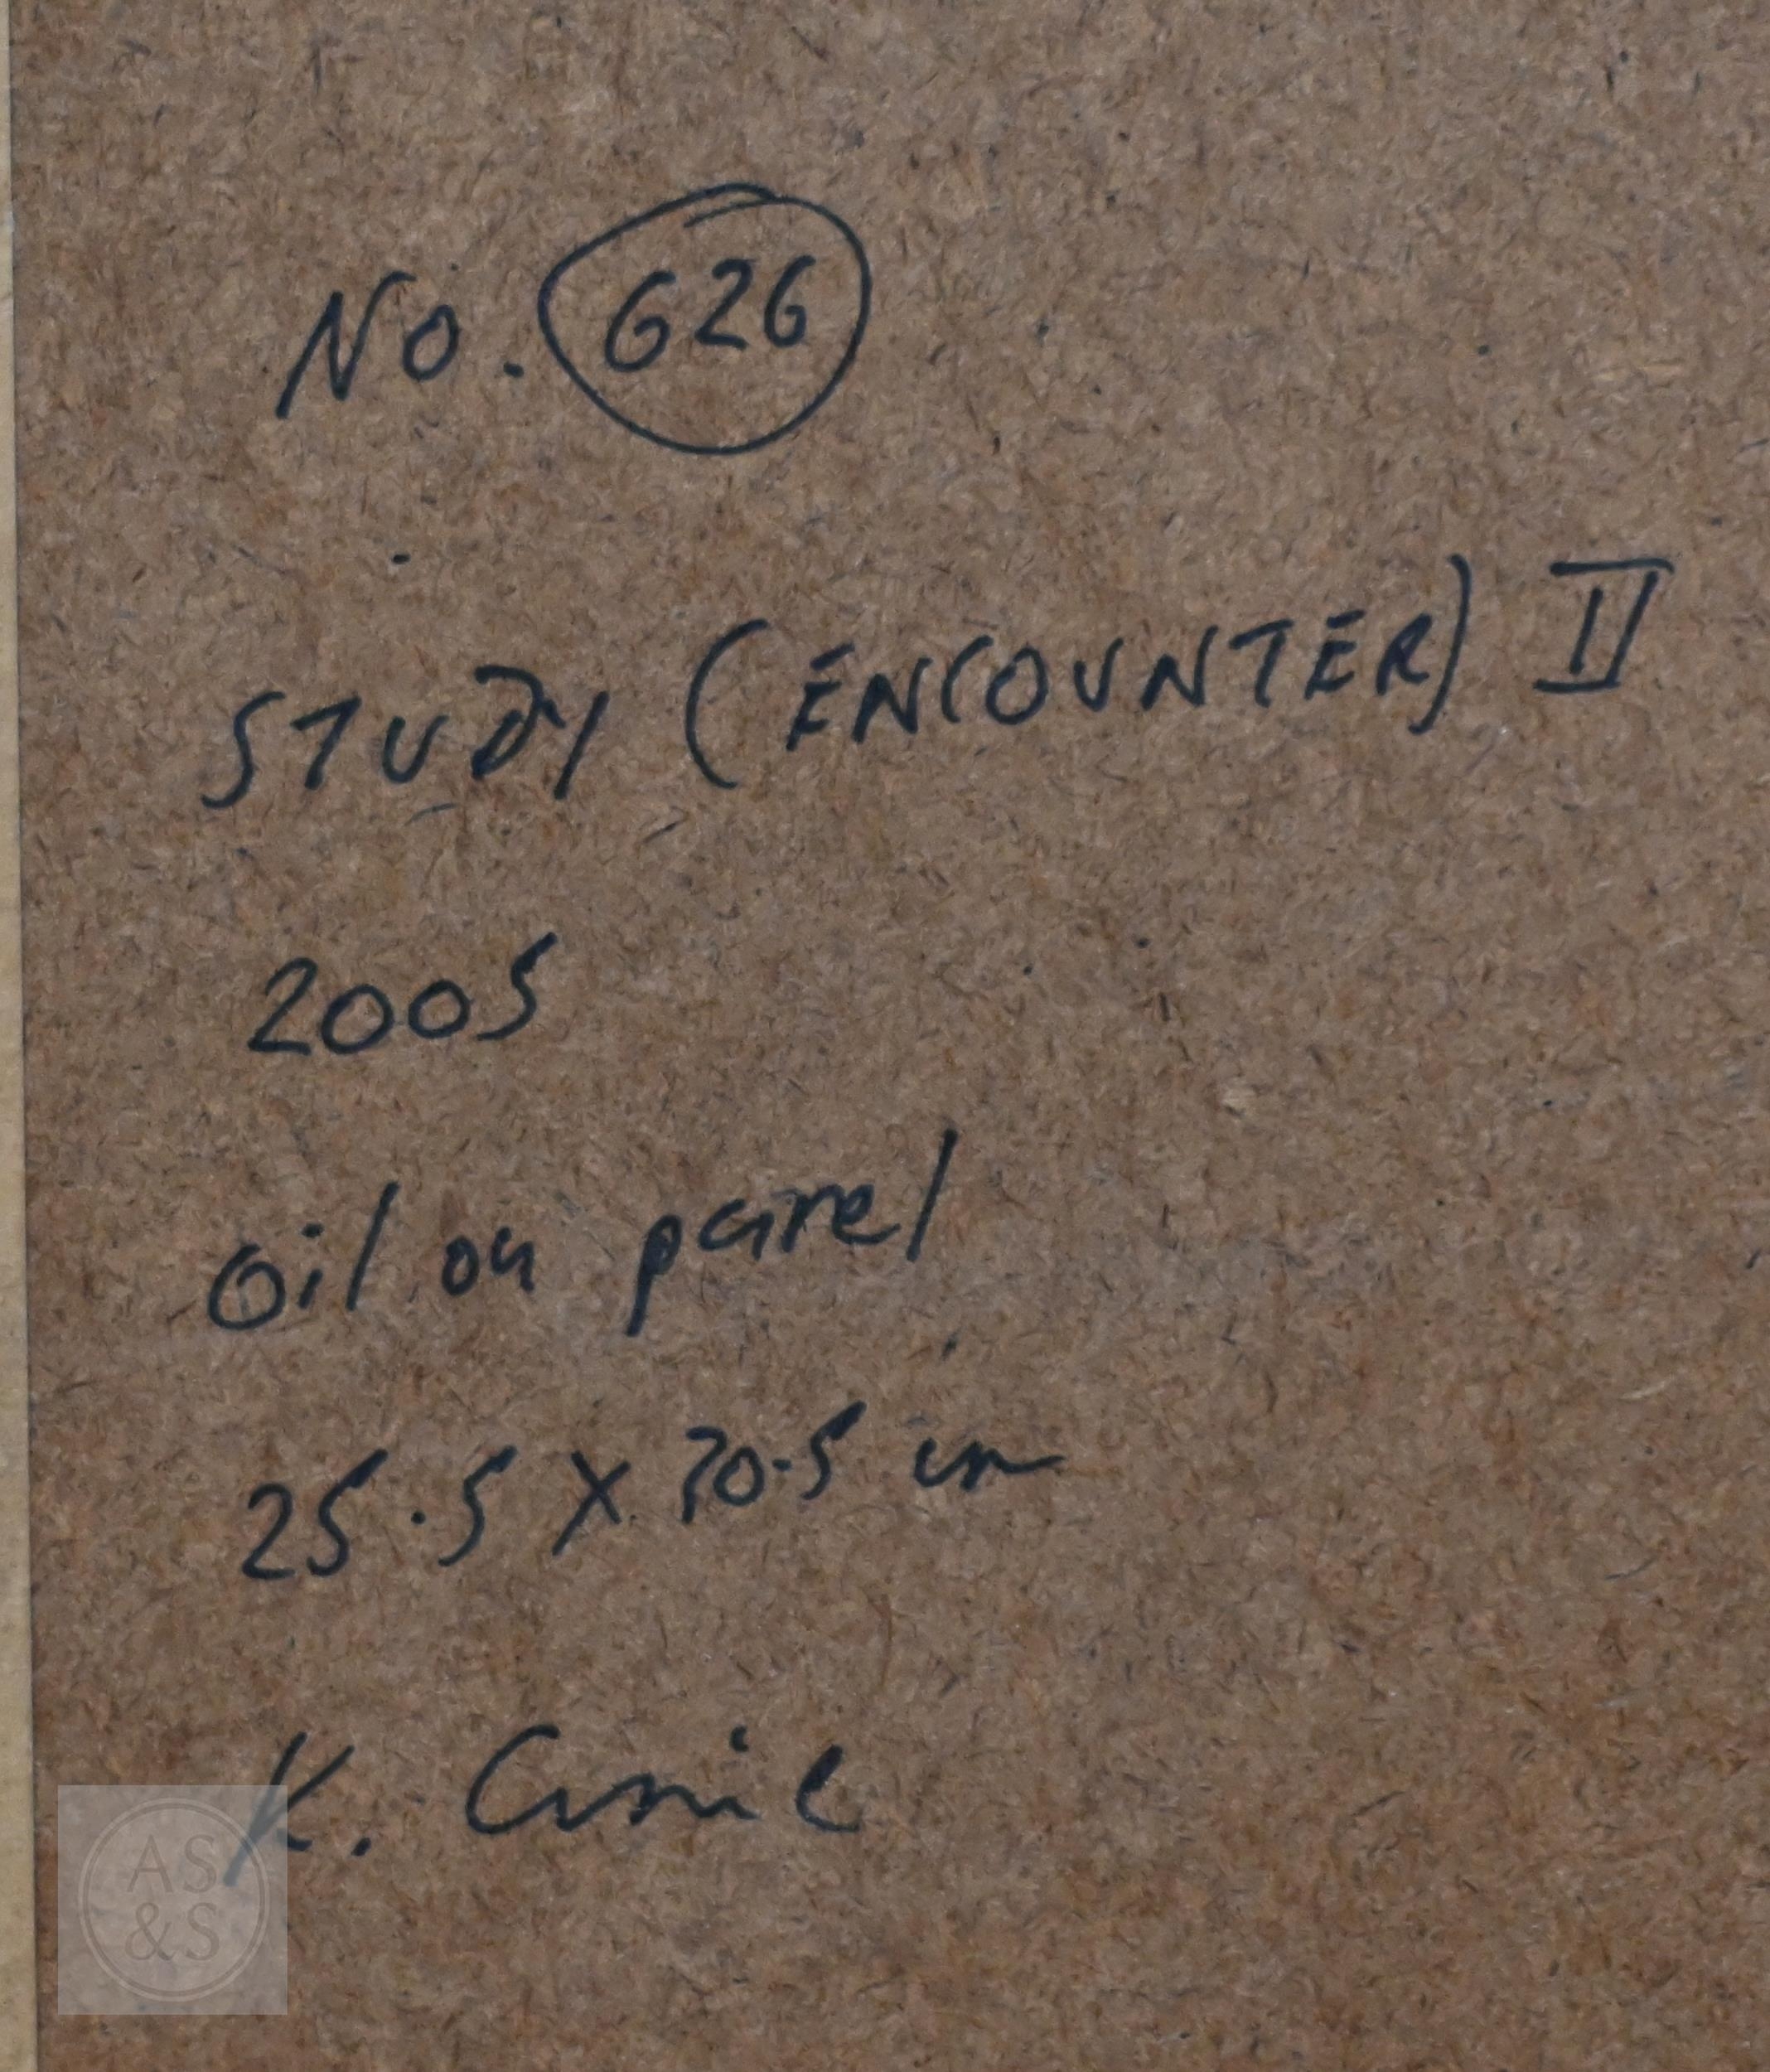 No. 626
STUDY (ENCOUNTER) II
2005
Oil on panel
25.5 X 30.5 cm
K.
AS
&S